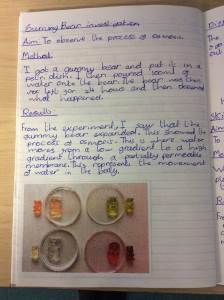 Gummy Bear investigation
Aim: To observe the process of osmosis.
Method:
I got a gummy bear and put it in a
petri dish. I then poured 100ml of
water onto the bear. The bear was then
left for 24 hours and then observed
what happened.
Results:
From the experiment, I saw that the
gummy bear expanded. This showed the
process of osmosis. This is where water
moves from a low gradient to a high
gradient through a partially permeable
membrane. This represents the movement
of water in the body.